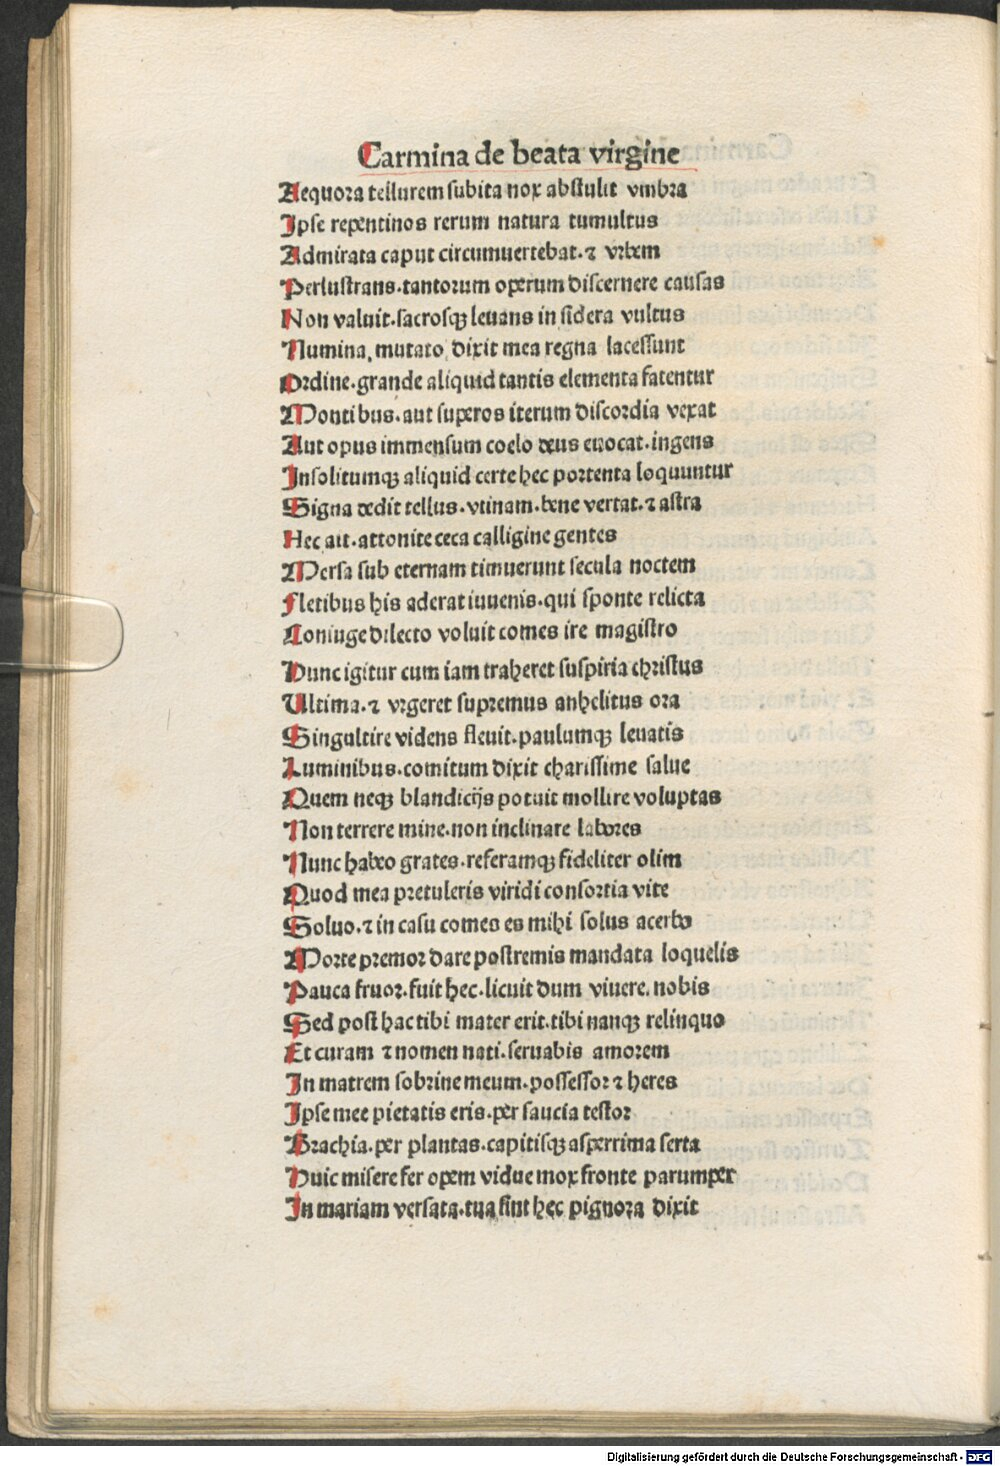 Carmina de beata virgine
Aequora tellurem subita nox abstulit vmbra
Ipse repentinos rerum natura tumultus
Admirata caput circumuertebat. ⁊ vrbem
Perlustrans. tantorum operum discernere causas
Non valuit. sacrosqꝫ leuans in sidera vultus
Numina, mutato dixit mea regna lacessunt
Ordine. grande aliquid tantis elementa fatentur
Montibus. aut superos iterum discordia vexat
Aut opus immensum coelo deus euocat. ingens
Insolitumqꝫ aliquid certe hec portenta loquuntur
Signa dedit tellus. vtinam. bene vertat. ⁊ astra
Hec ait. attonite ceca calligine gentes
Mersa sub eternam timuerunt secula noctem
Fletibus his aderat iuuenis. qui sponte relicta
Coniuge dilecto voluit comes ire magistro
Hunc igitur cum iam traheret suspiria christus
Ultima. ⁊ vrgeret supremus anhelitus ora
Singultire videns fleuit. paulumqꝫ leuatis
Luminibus. comitum dixit charissime salue
Quem neqꝫ blandicijs potuit mollire voluptas
Non terrere mine. non inclinare labores
Nunc habeo grates. referamqꝫ fideliter olim
Quod mea pretuleris viridi consortia vite
Soluo. ⁊ in casu comes es mihi solus acerbo
Morte premor dare postremis mandata loquelis
Pauca fruor. fuit hec. licuit dum viuere. nobis
Sed post hac tibi mater erit. tibi nanqꝫ relinquo
Et curam ⁊ nomen nati. seruabis amorem
In matrem sobrine meum. possessor ⁊ heres
Ipse mee pietatis eris. per saucia testor
Brachia. per plantas. capitisqꝫ asperrima serta
Huic misere fer opem vidue mox fronte parumper
In mariam versata. tua sint hec pignora dixit
Digitalisierung gefördert durch die Deutsche Forschungsgemeinschaft - DFG